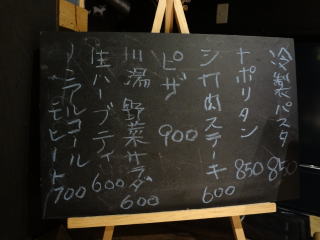 冷製パスタ 850
ナポリタン 850
シカ肉ステーキ 600
ピザ 900
川湯野菜サラダ 600
生ハーブティ 600
ノンアルコールモヒート 700